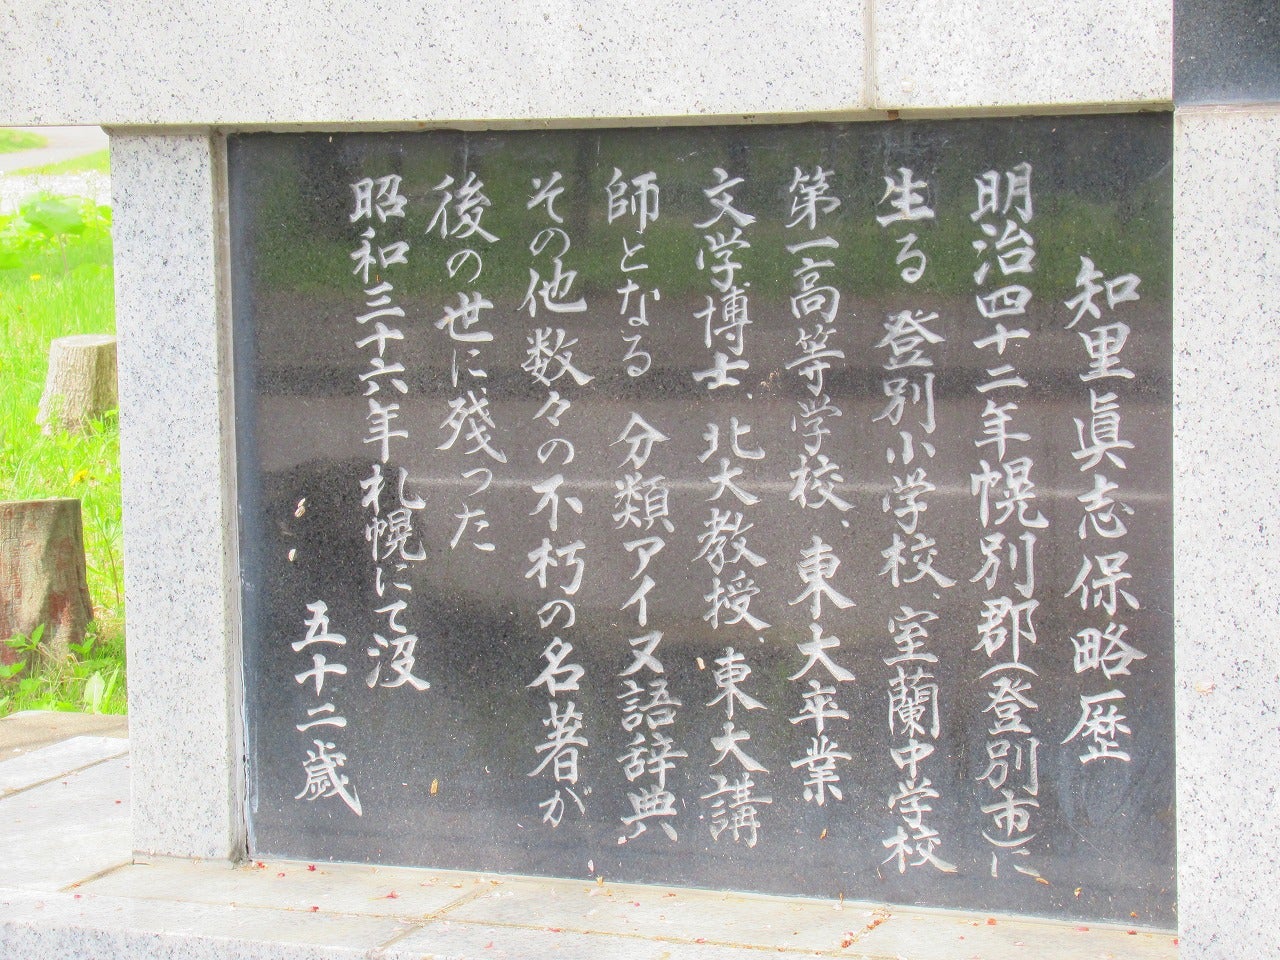 知里眞志保略歴
明治四十二年幌別郡(登別市)に
生る 登別小学校、室蘭中学校
第一高等学校、東大卒業
文学博士、北大教授、東大講
師となる 分類アイヌ語辞典
その他数々の不朽の名著が
後の世に残った
昭和三十六年札幌にて没
五十二歳